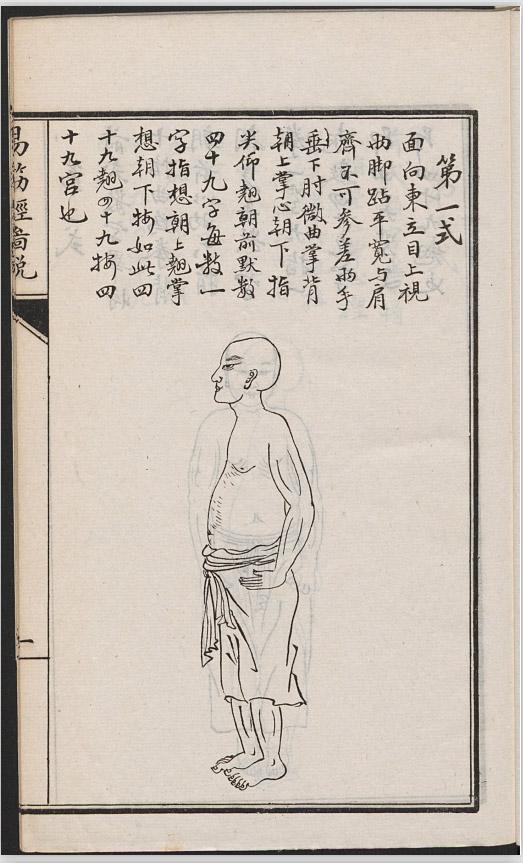 第一式
面向東立目上視
兩脚跕平寬與肩
齊不可參差兩手
垂下肘微曲掌背
朝上掌心朝下指
尖仰翹朝前默數
四十九字每數一
字指想朝上翹掌
想朝下按如此四
十九翹四十九按四
十九宫也
易筋經圖說
一